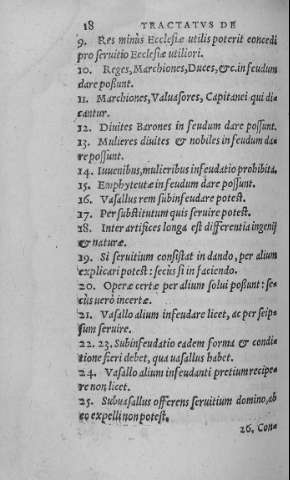 18 TRACTATVS DE
9. Res minùs Ecclesiæ utilis poterit concedi
pro seruitio Ecclesiæ utiliori.
10. Reges, Marchiones, Duces, &c. in feudum
dare possunt.
11. Marchiones, Valuasores, Capitanei qui di-
cantur.
12. Diuites Barones in feudum dare possunt.
13. Mulieres diuites & nobiles in feudum da-
re possunt.
14. Iuuenibus, mulieribus infeudatio prohibita.
15. Emphyteutæ in feudum dare possunt.
16. Vasallus rem subinfeudare potest.
17. Per substitutum quis seruire potest.
18. Inter artifices longa est differentia ingenij
& naturæ.
19. Si seruitium consistat in dando, per alium
explicari potest: secùs si in faciendo.
20. Operæ certæ per alium solui possunt: se-
cùs uerò incertæ.
21. Vasallo alium infeudare licet, ac per seip-
sum seruire.
22. 23. Subinfeudatio eadem forma & condi-
tione fieri debet, qua uasallus habet.
24. Vasallo alium infeudanti pretium recipe-
re non licet.
25. Subuasallus offerens seruitium domino, ab
eo expelli non potest.
26. Con-